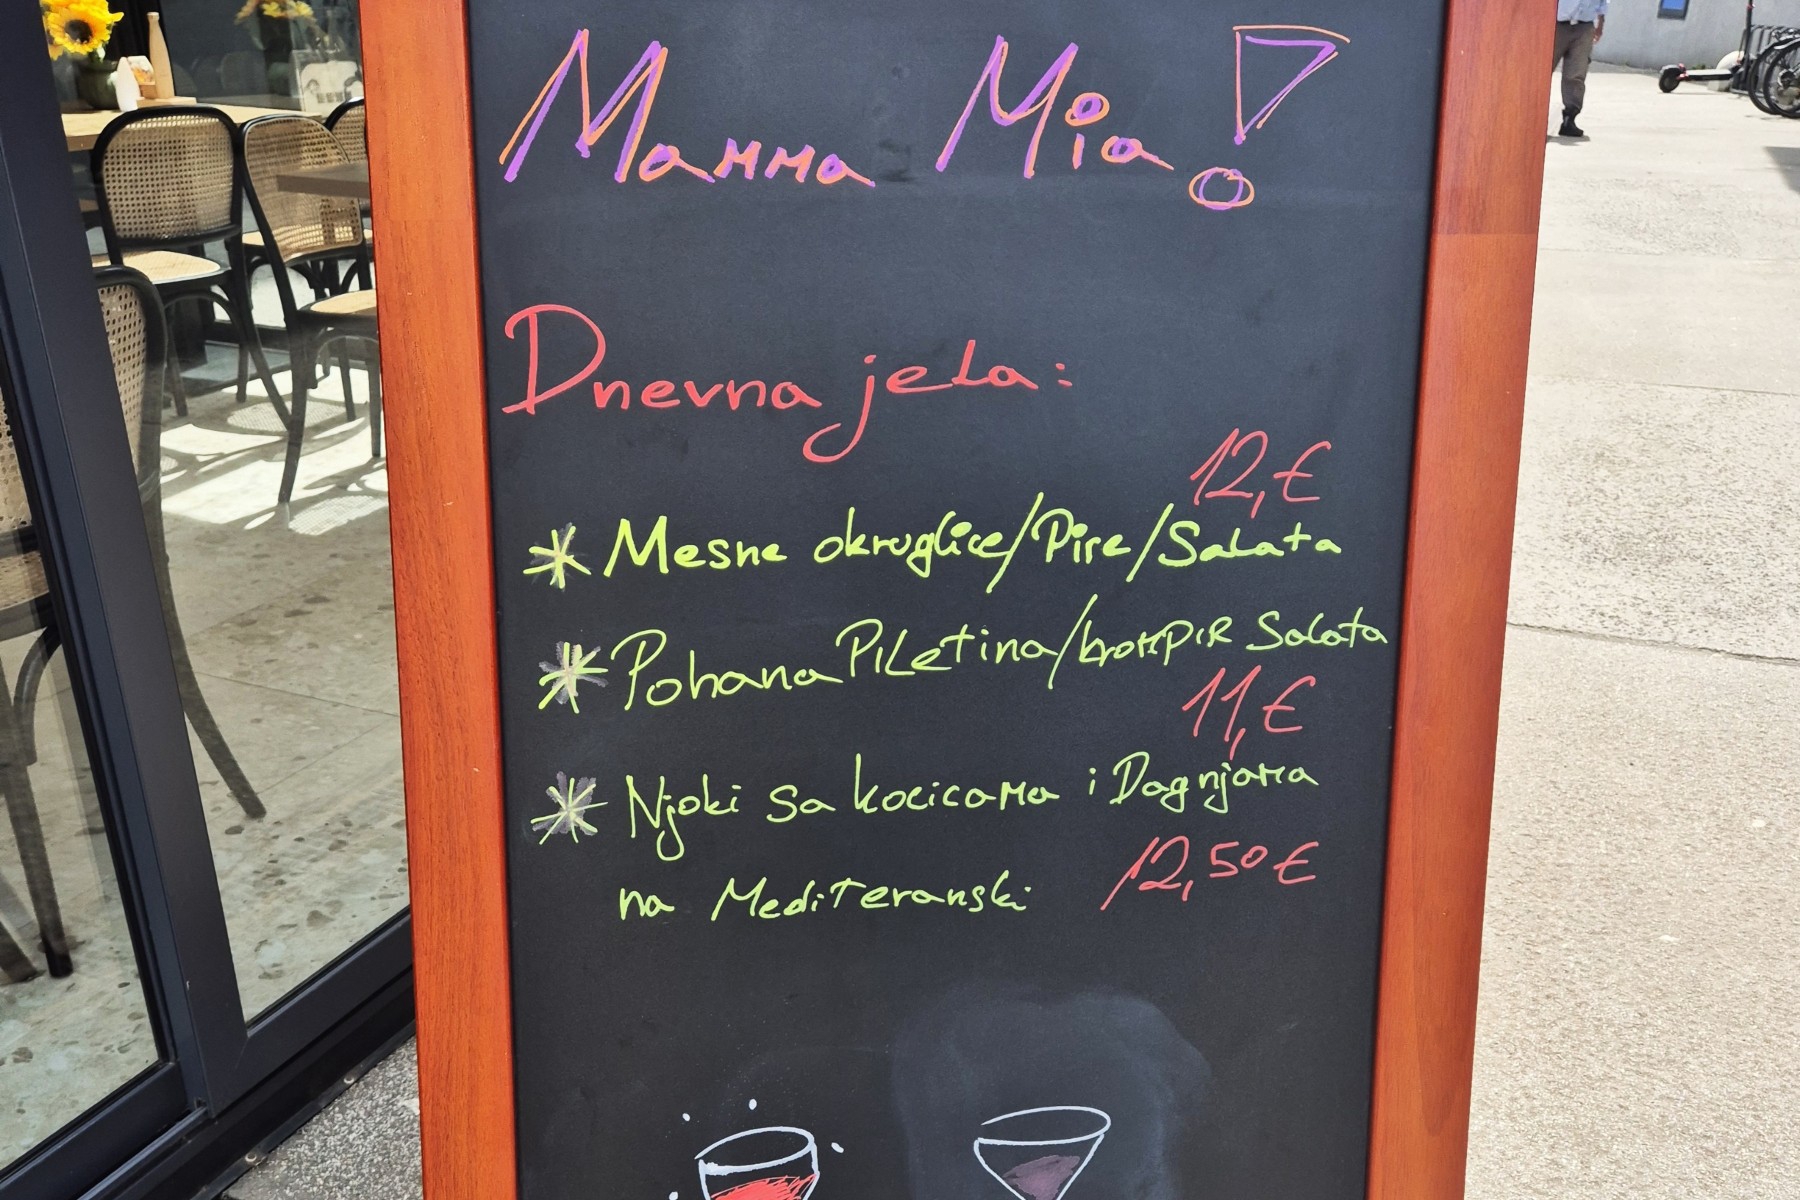 Mamma Mia!
Dnevna jela:
12,€
* Mesne okruglice/Pire/Salata
* Pohana Piletina/krompir Salata
11,€
* Njoki sa kocicama i Dagnjama
na Mediteranski 12,50€